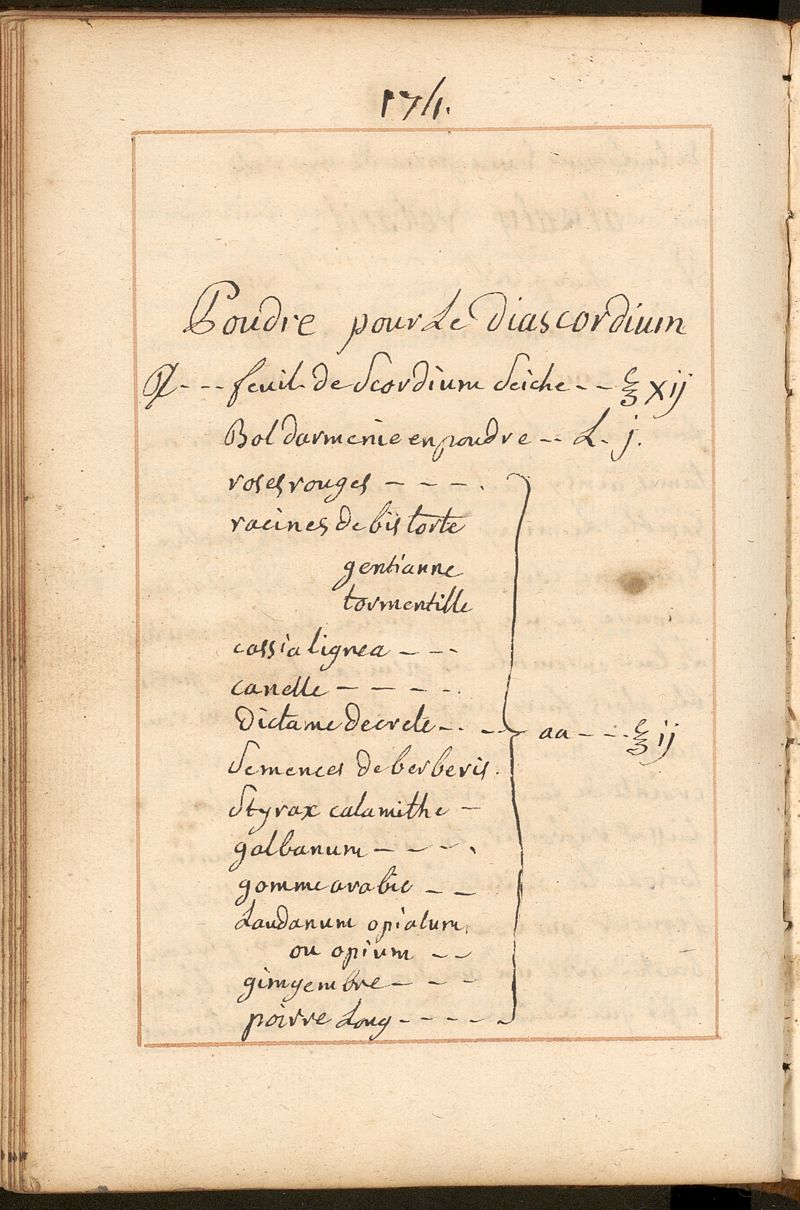 174.
Poudre pour Le Diascordium
℞ - - - feuil. de Scordium Seiche - - ℥ xij
Bol darmenie en poudre - - L. j.
roses rouges - - - .
racines de bistorte
gentianne
tormentille
cassia lignea - - -
canelle - - - - .
Dictame de crete - . - -
aa - - - ℥ ij
Semences de berberis.
Styrax calamithe -
galbanum - - - .
gomme arabic - -
Laudanum opiatum,
ou opium - -
gimgembre - - -
poivre Long - - - - -